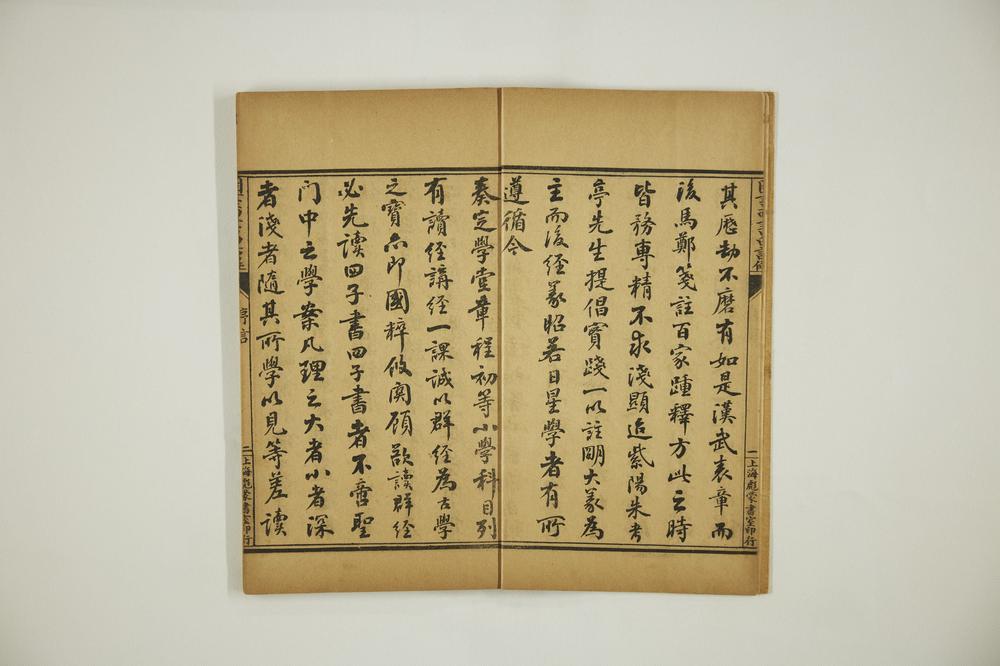 其歷劫不磨有如是漢武表章而
後馬鄭箋註百家踵釋方此之時
皆務專精不求淺顯迨紫陽朱考
亭先生提倡實踐一以註明大義為
主而後經義昭若日星學者有所
遵循今
奏定學堂章程初等小學科目列
有讀經講經一課誠以群經為古學
之寶亦即國粹攸關顧欲讀群經
必先讀四子書四子書者不啻聖
門中之學案凡理之大者小者深
者淺者隨其所學以見等差讀
一上海彪蒙書室印行
序言
二上海彪蒙書室印行